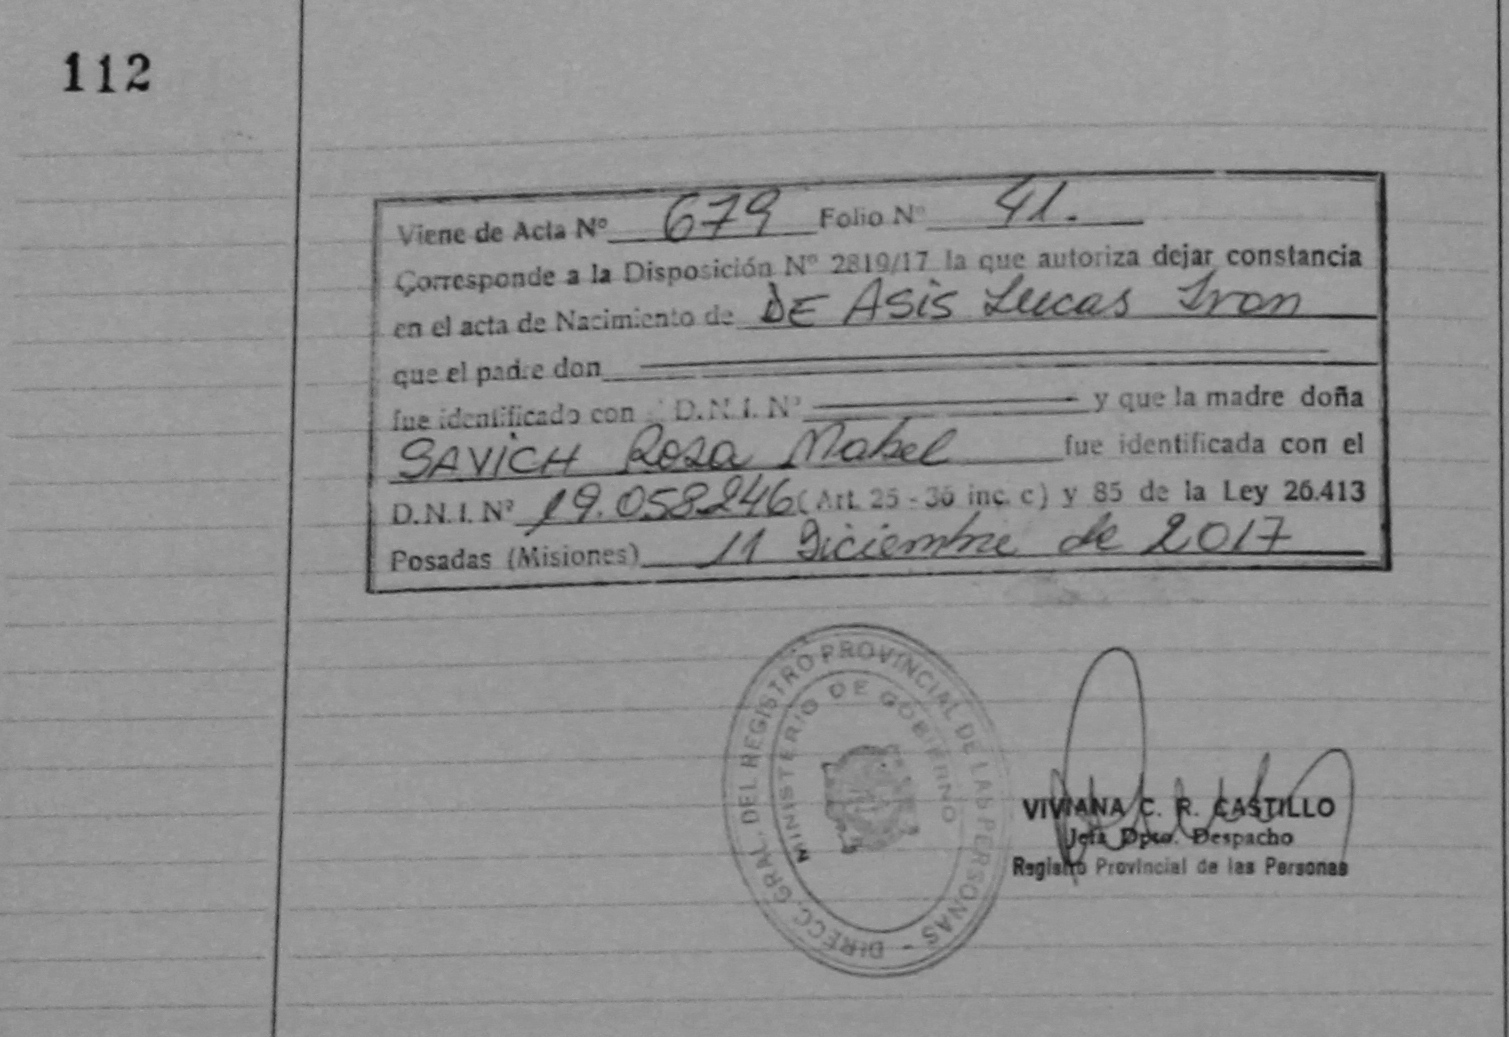 112
Viene de Acta Nº 679 Folio Nº 41.
Corresponde a la Disposición Nº 2819/17 la que autoriza dejar constancia
en el acta de Nacimiento de DE ASIS Lucas Ivan
que el padre don
fue identificado con D.N.I. Nº y que la madre doña
SAVICH Rosa Mabel fue identificada con el
D.N.I. Nº 19.058246 (Art. 25 - 36 inc. c) y 85 de la Ley 26.413
Posadas (Misiones) 11 Diciembre de 2017
DIRECC. GRAL. DEL REGISTRO PROVINCIAL DE LAS PERSONAS -
MINISTERIO DE GOBIERNO
VIVIANA C. R. CASTILLO
Jefa Dpto. Despacho
Registro Provincial de las Personas